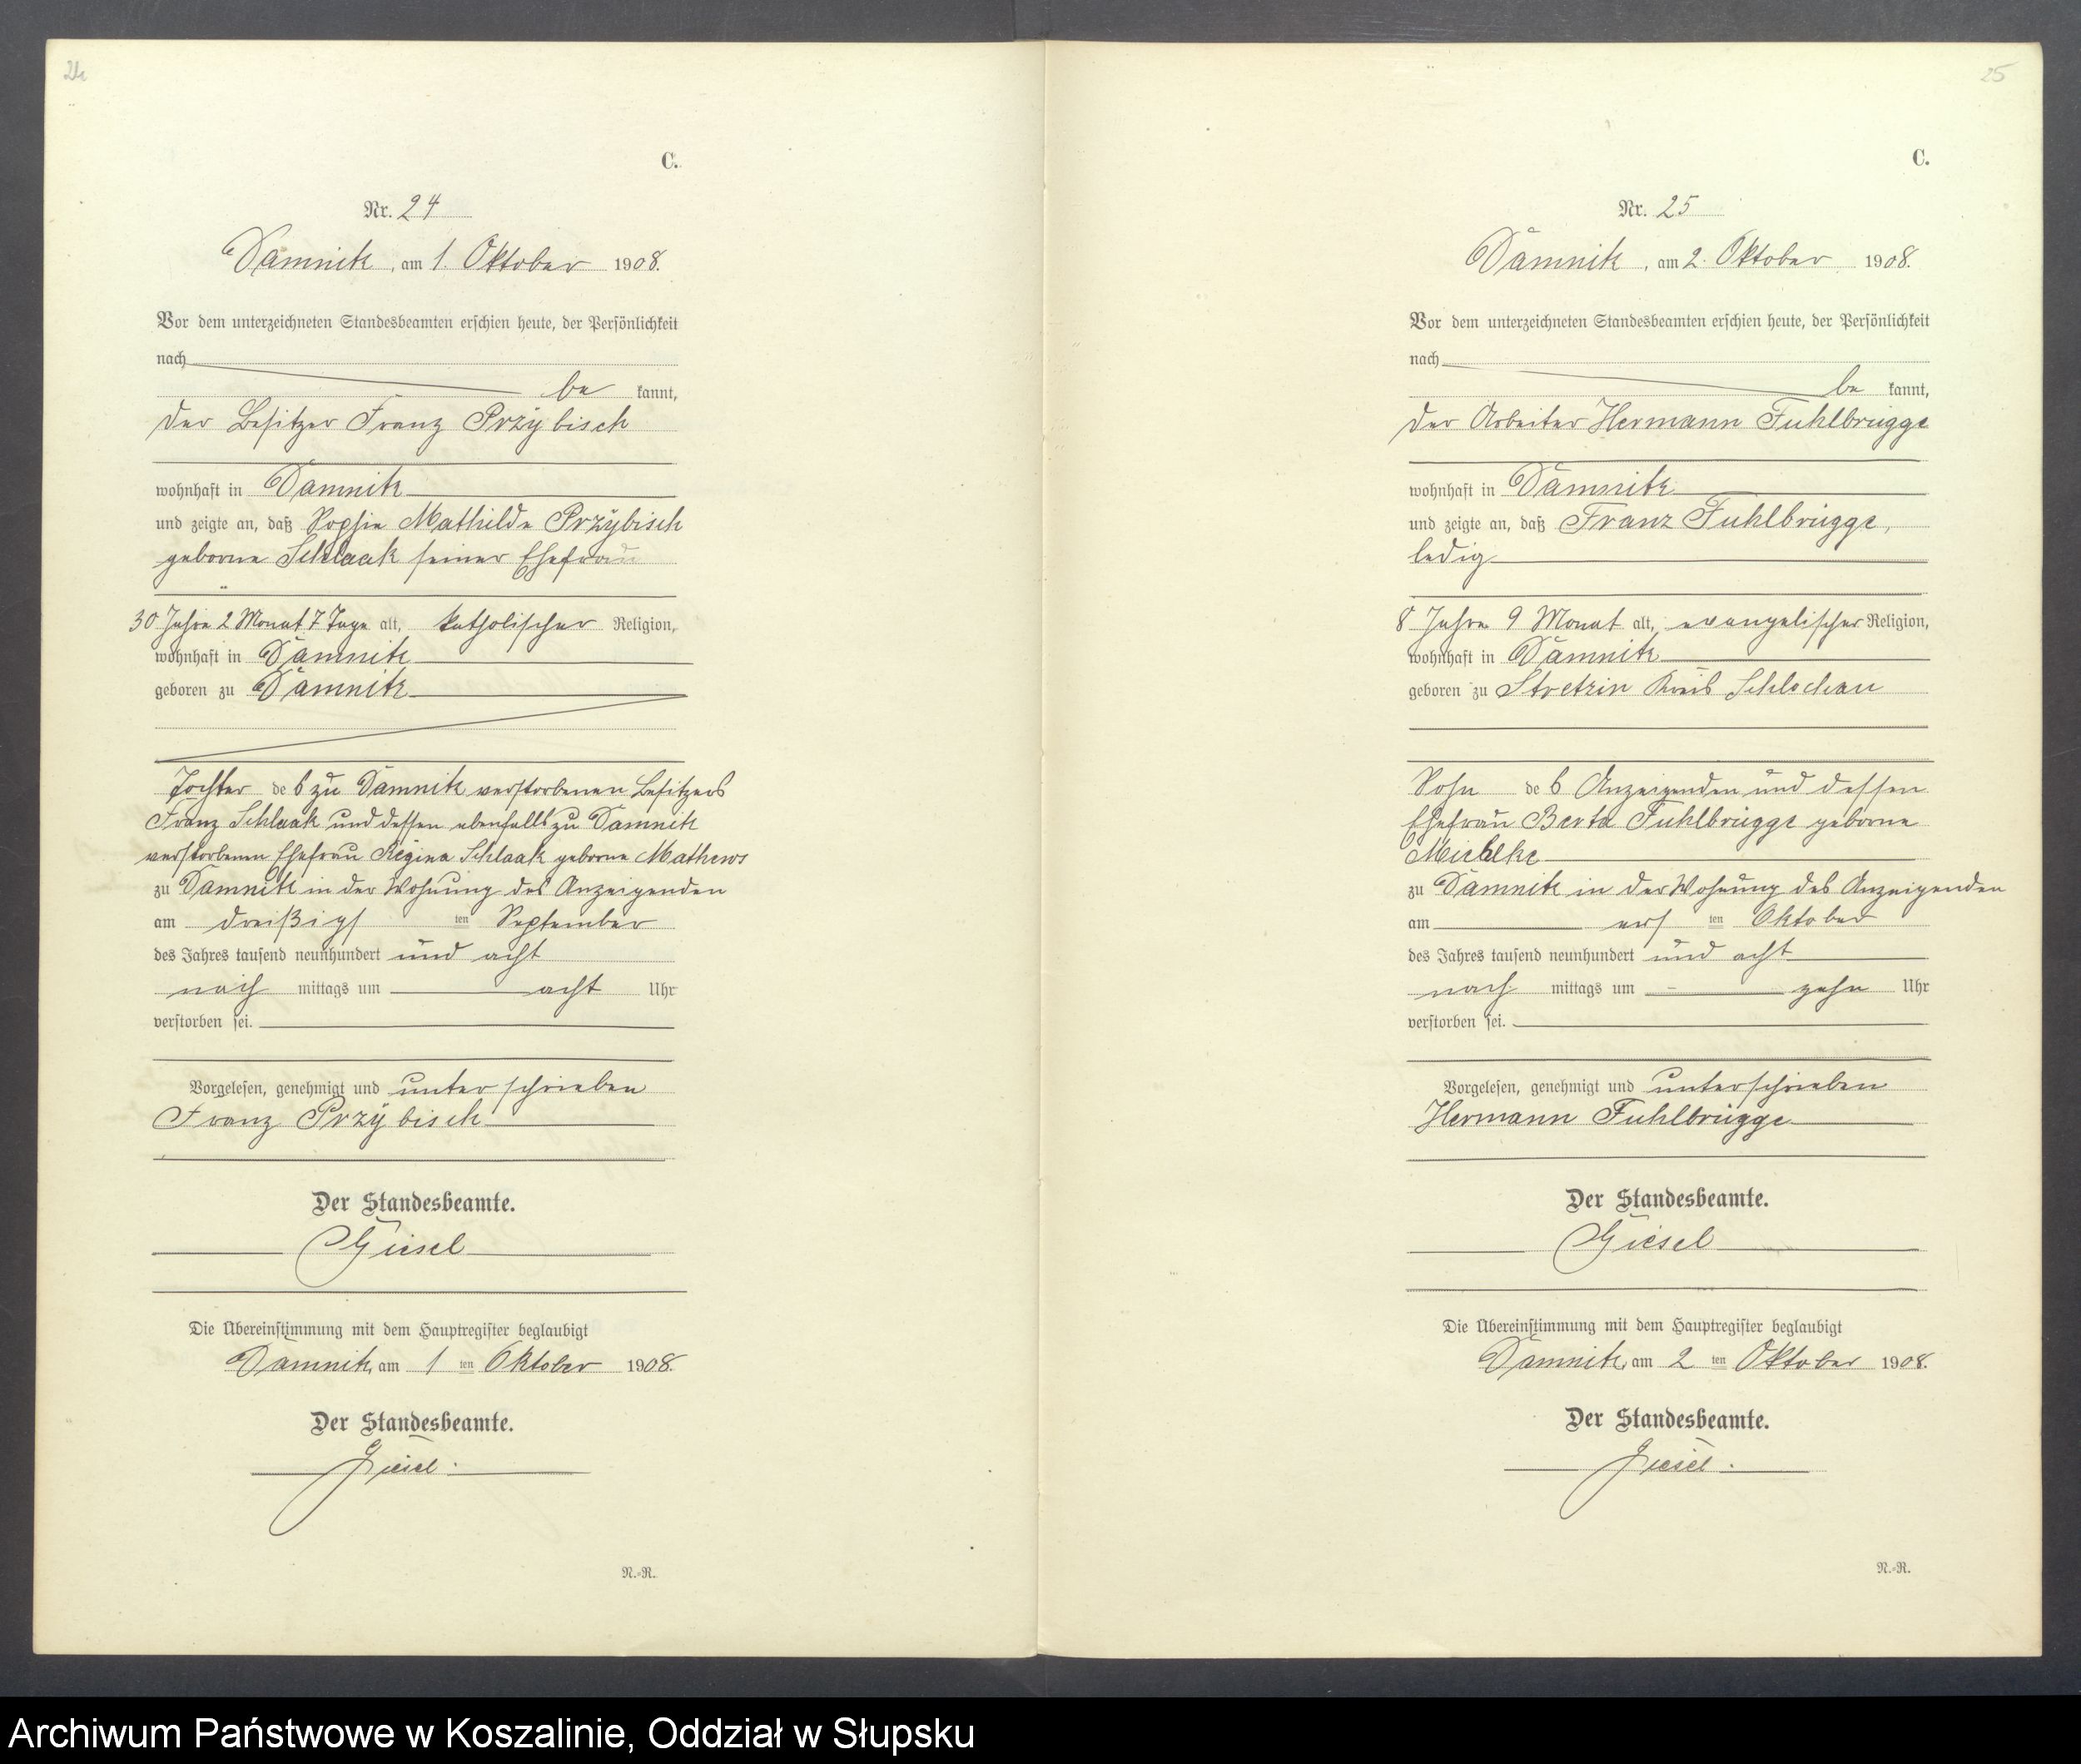 24
C.
Nr. 24
Damnitz, am 1. Oktober 1908.
Vor dem unterzeichneten Standesbeamten erschien heute, der Persönlichkeit
nach
be kannt,
der Besitzer Franz Przybisch
wohnhaft in Damnitz
und zeigte an, daß Sophie Mathilde Przybisch
geborne Schlaak seiner Ehefrau
30 Jahre 2 Monat 7 Tage alt, katholischer Religion,
wohnhaft in Damnitz
geboren zu Damnitz
Tochter des zu Damnitz verstorbenen Besitzers
Franz Schlaak und dessen ebenfalls zu Damnitz
verstorbenen Ehefrau Regina Schlaak geborne Mathews
zu Damnitz in der Wohnung des Anzeigenden
am dreißigs ten September
des Jahres tausend neunhundert und acht
nach mittags um acht Uhr
verstorben sei.
Vorgelesen, genehmigt und unterschrieben
Franz Przybisch
Der Standesbeamte.
Giesel
Die Übereinstimmung mit dem Hauptregister beglaubigt
Damnitz, am 1 ten Oktober 1908.
Der Standesbeamte.
Giesel.
N.-R.
25
C.
Nr. 25
Damnitz, am 2. Oktober 1908.
Vor dem unterzeichneten Standesbeamten erschien heute, der Persönlichkeit
nach
be kannt,
der Arbeiter Hermann Fuhlbrügge
wohnhaft in Damnitz
und zeigte an, daß Franz Fuhlbrügge,
ledig
8 Jahre 9 Monat alt, evangelischer Religion,
wohnhaft in Damnitz
geboren zu Stretzin Kreis Schlochau
Sohn des Anzeigenden und dessen
Ehefrau Berta Fuhlbrügge geborne
Mielke
zu Damnitz in der Wohnung des Anzeigenden
am ers ten Oktober
des Jahres tausend neunhundert und acht
nach mittags um zehn Uhr
verstorben sei.
Vorgelesen, genehmigt und unterschrieben
Hermann Fuhlbrügge
Der Standesbeamte.
Giesel
Die Übereinstimmung mit dem Hauptregister beglaubigt
Damnitz, am 2 ten Oktober 1908.
Der Standesbeamte.
Giesel.
N.-R.
Archiwum Państwowe w Koszalinie, Oddział w Słupsku